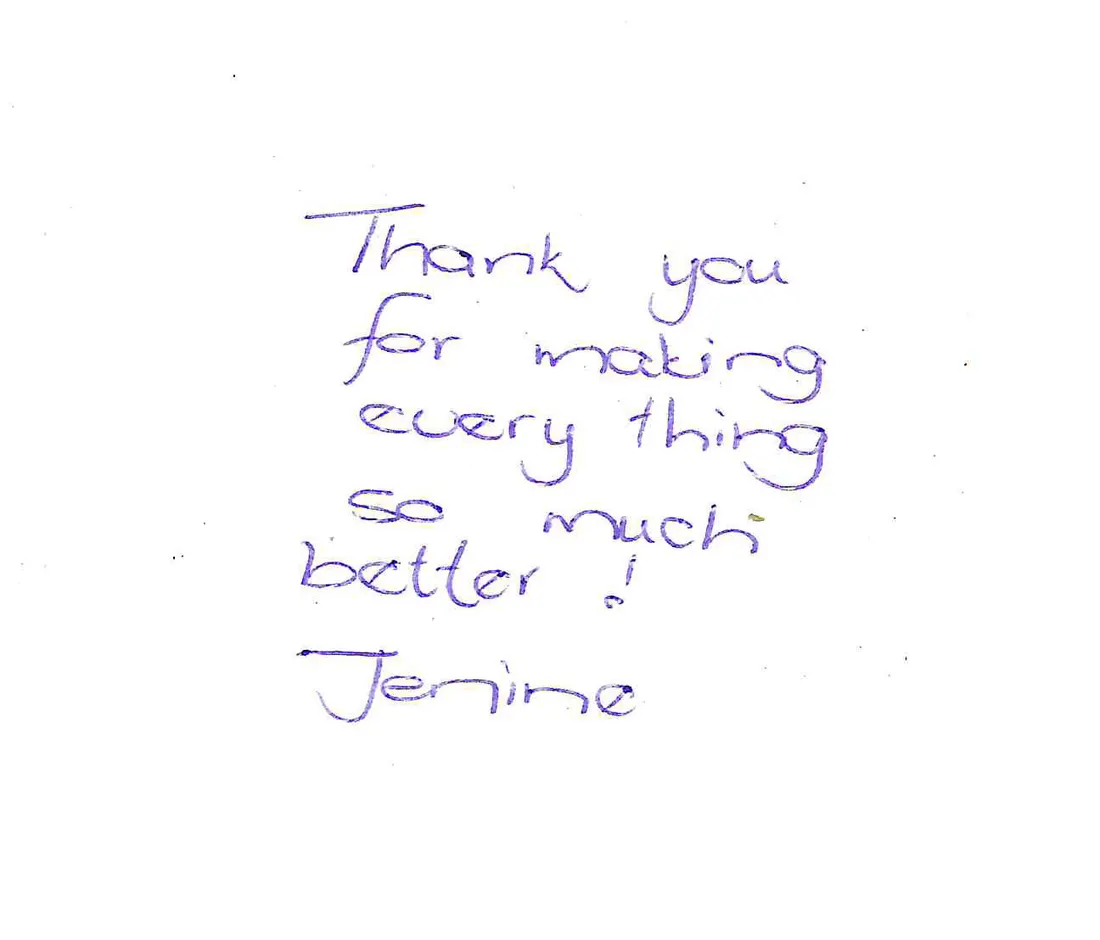 Thank you
for making
every thing
so much
better !
Jenine